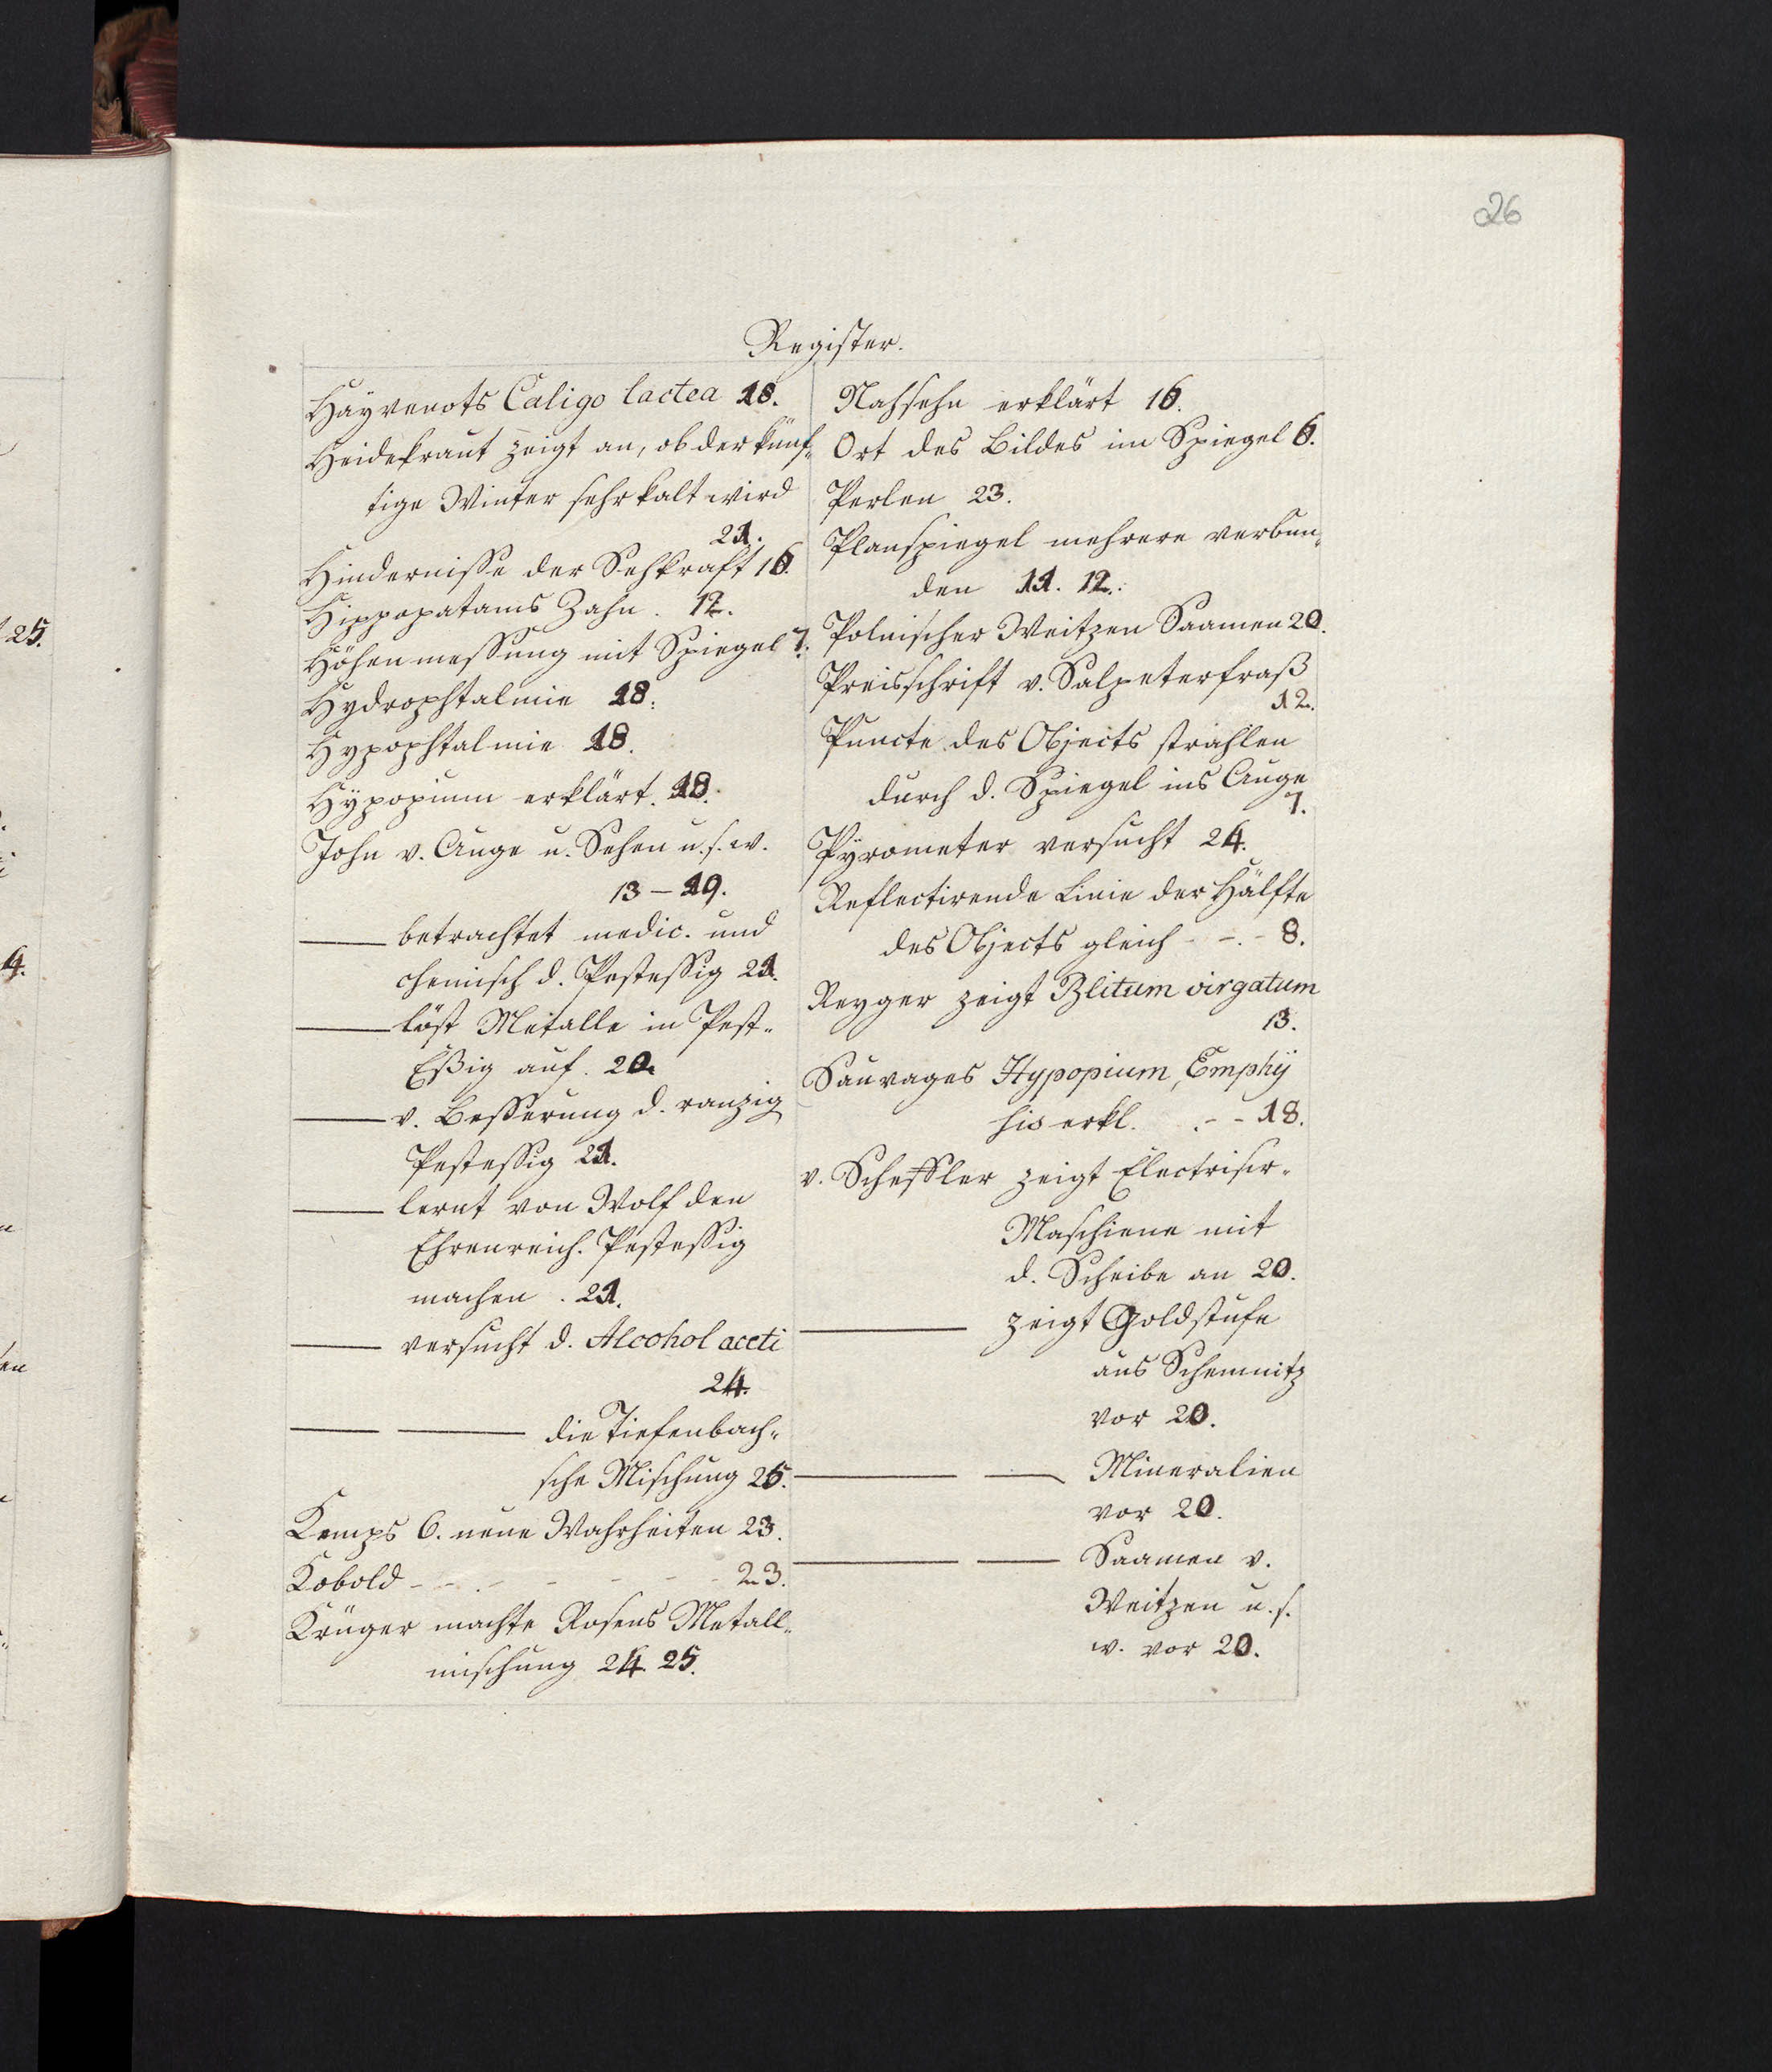 26
Register.
Häyvenots Caligo lactea 18.
Heidekraut zeigt an, ob der künf-
tige Winter sehr kalt wird
21.
Hindernisse der Sehkraft 16.
Hippopatams Zahn. 12.
Höhenmessung mit Spiegel 7.
Hydrophtalmie 18.
Hypophtalmie 18.
Hÿpopium erklärt. 18.
John v. Auge u. Sehen u. s. w.
13–19.
— betrachtet medic. und
chemisch d. Pestessig 21.
— löst Metalle in Pest-
Eßig auf. 20.
— v. Besserung d. ranzig
Pestessig 21.
— lernt von Wolf den
Ehrenreich. Pestessig
machen. 21.
— versucht d. Alcohol aceti
24.
— — die Tiefenbach-
sche Mischung 25.
Kemps 6. neue Wahrheiten 23.
Kobold - - - - - - 23.
Krüger machte Rosens Metall-
mischung 24. 25.
Nahsehn erklärt 16.
Ort des Bildes im Spiegel 6.
Perlen 23.
Planspiegel mehrere verbun-
den 11. 12.
Polnischer Weitzen Saamen 20.
Preisschrift v. Salpeterfraß
12.
Puncte des Objects strahlen
durch d. Spiegel ins Auge
7.
Pÿrometer versucht 24.
Reflectirende Linie der Hälfte
des Objects gleich - - - 8.
Reyger zeigt Blitum virgatum
13.
Sauvages Hypopium, Emphÿ
sis erkl. - - 18.
v. Scheffler zeigt Electrisir-
Maschiene mit
d. Scheibe an 20.
— zeigt Goldstufe
aus Schemnitz
vor 20.
— — Mineralien
vor 20.
— — Saamen v.
Weitzen u. s.
w. vor 20.
25.
4.